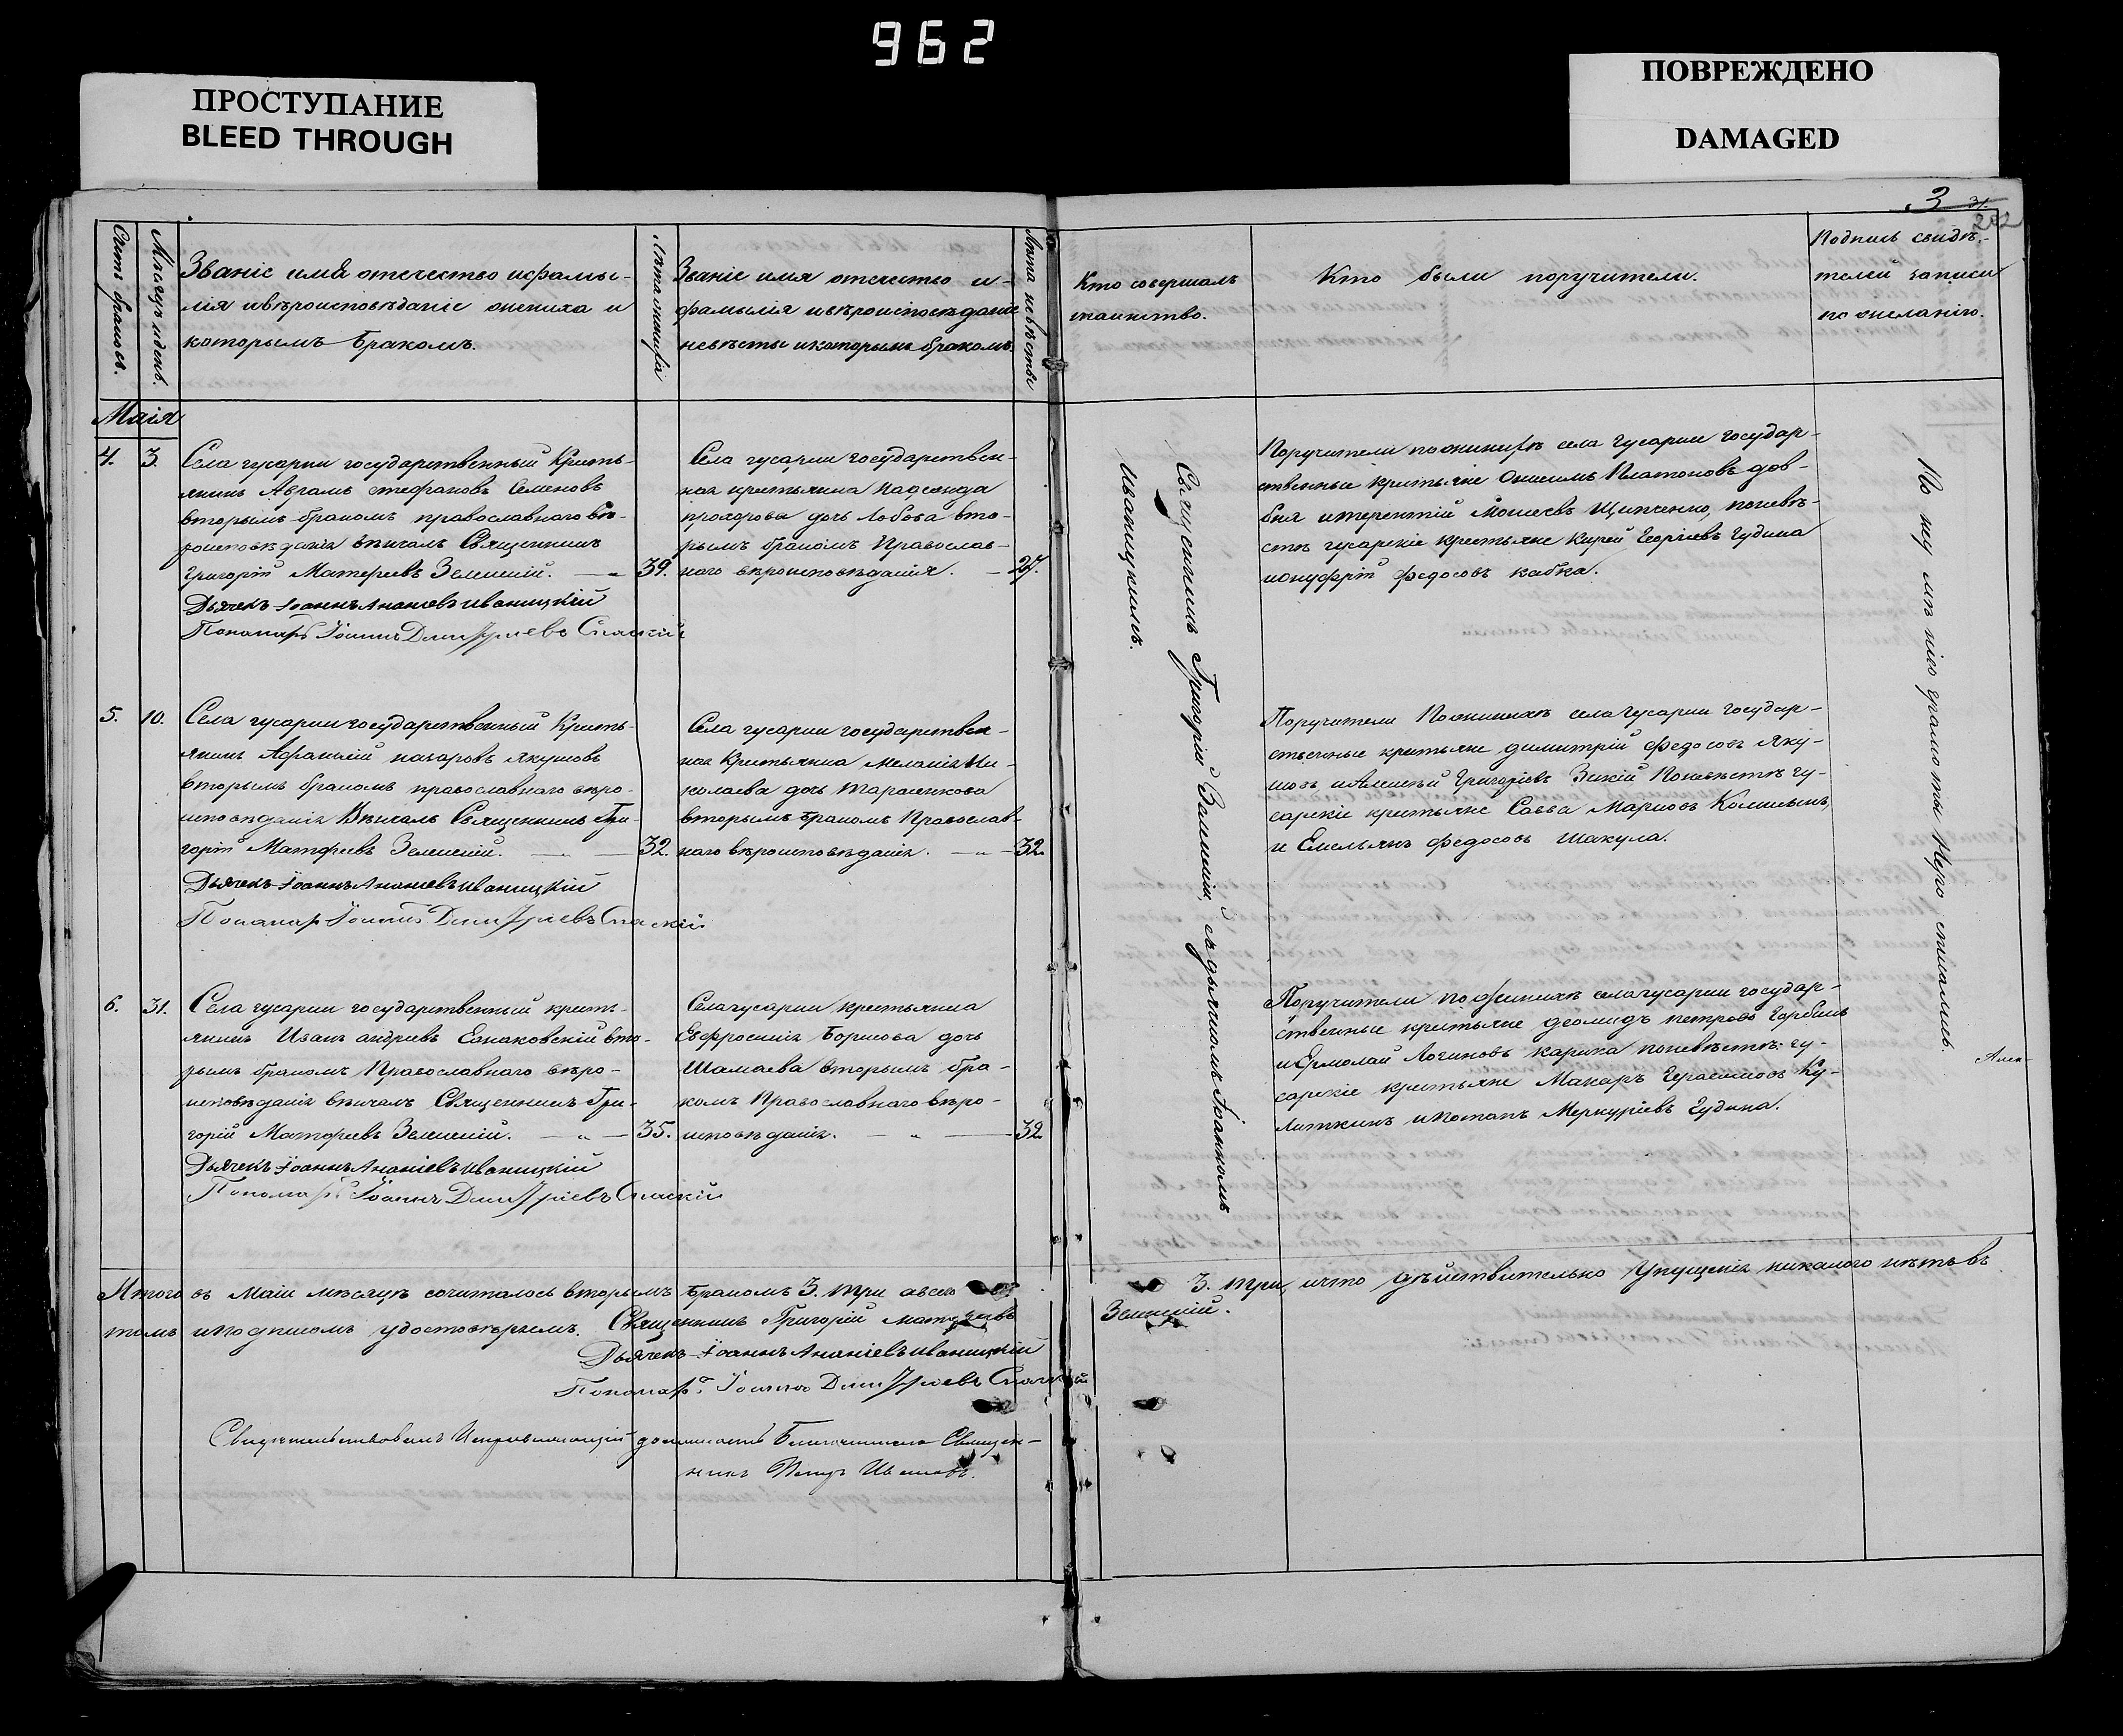 962
ПРОСТУПАНИЕ
BLEED THROUGH
ПОВРЕЖДЕНО
DAMAGED
3
202
Счетъ браковъ.
Мѣсяцъ и день.
Званіе имя отечество и фамы-
лія и вѣроисповѣданіе жениха и
которымъ бракомъ.
Лѣта жениха
Званіе имя отечество и
фамылія и вѣроисповѣданіе
невѣсты и которымъ бракомъ.
Лѣта невѣсты
Кто совершалъ
таинство.
Кто были поручители.
Подпись свидѣ-
телей записи
по желанію.
Маія
4. 3.
Села гусарки государственный Кресть-
янинъ Аврамъ стефановъ Семеновъ
вторымъ бракомъ православнаго вѣ-
роисповѣданія вѣнчалъ Священникъ
Григорій Матфеевъ Зеленскій. 39.
Дьячекъ Іоаннъ Ананіевъ иваницкій
Пономарь Іоаннъ Димитріевъ Спаскій
Села гусарки государствен-
ная крестьянка Надежда
прохорова дочь Лобова вто-
рымъ бракомъ Православ-
наго вѣроисповѣданія. 27.
Священникъ Григорій Зеленскій, съ дьячкомъ Іоанномъ
Иваницкимъ.
Поручители по женихѣ села гусарки государ-
ственные крестьяне Онисимъ Платоновъ дов-
бня и терентій Моисеевъ Щипченко, по невѣ-
стѣ гусарскіе крестьяне Кирей Георгіевъ Гудина
и онуфрій федосовъ кабка.
По неумѣнію грамоты Неро списались.
5. 10.
Села гусарки государственный Кресть-
янинъ Афанасій назаровъ якушовъ
вторымъ бракомъ православнаго вѣро-
исповѣданія Вѣнчалъ Священникъ Гри-
горій Матфеевъ Зеленскій. 32.
Дьячекъ Іоаннъ Ананіевъ иваницкій
Пономарь Іоаннъ Димитріевъ Спаскій
Села гусарки государствен-
ная Крестьянка Меланія Ни-
колаева дочь Тарасенкова
вторымъ бракомъ Православ-
наго вѣроисповѣданія. 32.
Поручители По женихѣ села гусарки государ-
ственные крестьяне димитрій федосовъ Яку-
шовъ и Алексѣй Григоріевъ Зикій По невѣстѣ гу-
сарскіе крестьяне Савва Марковъ
и Емельянъ федосовъ Шакула.
6. 31.
Села гусарки государственный кресть-
янинъ Иванъ андреевъ вто-
рымъ бракомъ Православнаго вѣро-
исповѣданія вѣнчалъ Священникъ Гри-
горій Матфеевъ Зеленскій. 35.
Дьячекъ Іоаннъ Ананіевъ иваницкій
Пономарь Іоаннъ Димитріевъ Спаскій
Села гусарки крестьянка
Евфросинія Борисова дочь
Шамаева вторымъ бра-
комъ Православнаго вѣро-
исповѣданія. 32
Поручители по женихѣ села гусарки государ-
ственные крестьяне діомидъ петровъ Горбань
и Ермолай Логиновъ карика по невѣстѣ: гу-
сарскіе крестьяне Макаръ Герасимовъ Ку-
литкинъ и Потапъ Меркуріевъ Гудина.
Итого въ Маіи мѣсяцѣ сочиталось вторымъ бракомъ 3. три а всего 3. три, и что дѣйствительно Упущенія никакого нѣтъ въ
томъ и подписомъ удостовѣряемъ. Священникъ Григорій Матфеевъ Зеленскій.
Дьячекъ Іоаннъ Ананіевъ иваницкій
Пономарь Іоаннъ Димитріевъ Спаскій
Свидѣтельствовалъ Исправляющій должность Благочиннаго Священ-
никъ Петръ Ивановъ.